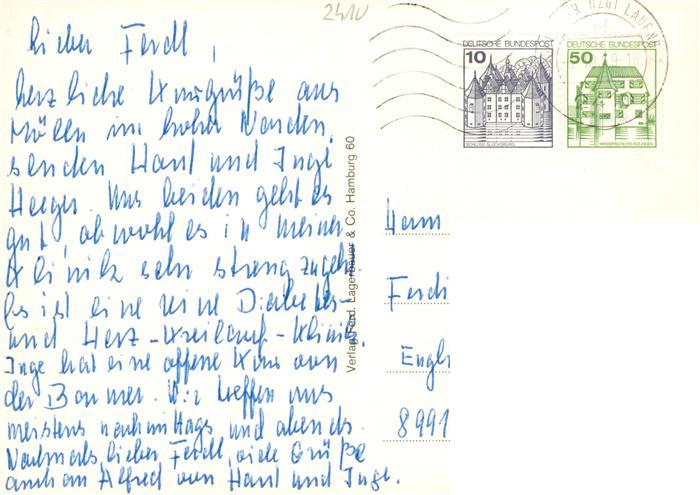 2410
Lieber Ferdl,
herzliche Kurgrüße aus
Mölln im hohen Norden
senden Hans und Inge
Uns beiden geht es
gut, obwohl es in meiner
Klinik sehr streng zugeht.
Es ist eine reine Diabetes-
und Herz-Kreislauf-Klinik.
Inge hat eine offene Kur von
der Barmer. Wir treffen uns
meistens nachmittags und abends.
Nochmals lieber Ferdl, viele Grüße
auch an Alfred von Hans und Inge.
Verlag Ferd. Lagerbauer & Co. Hamburg 60
DEUTSCHE BUNDESPOST
10
SCHLOSS GLÜCKSBURG
DEUTSCHE BUNDESPOST
50
WASSERSCHLOSS INZLINGEN
Herrn
Ferdi
Engl
8991